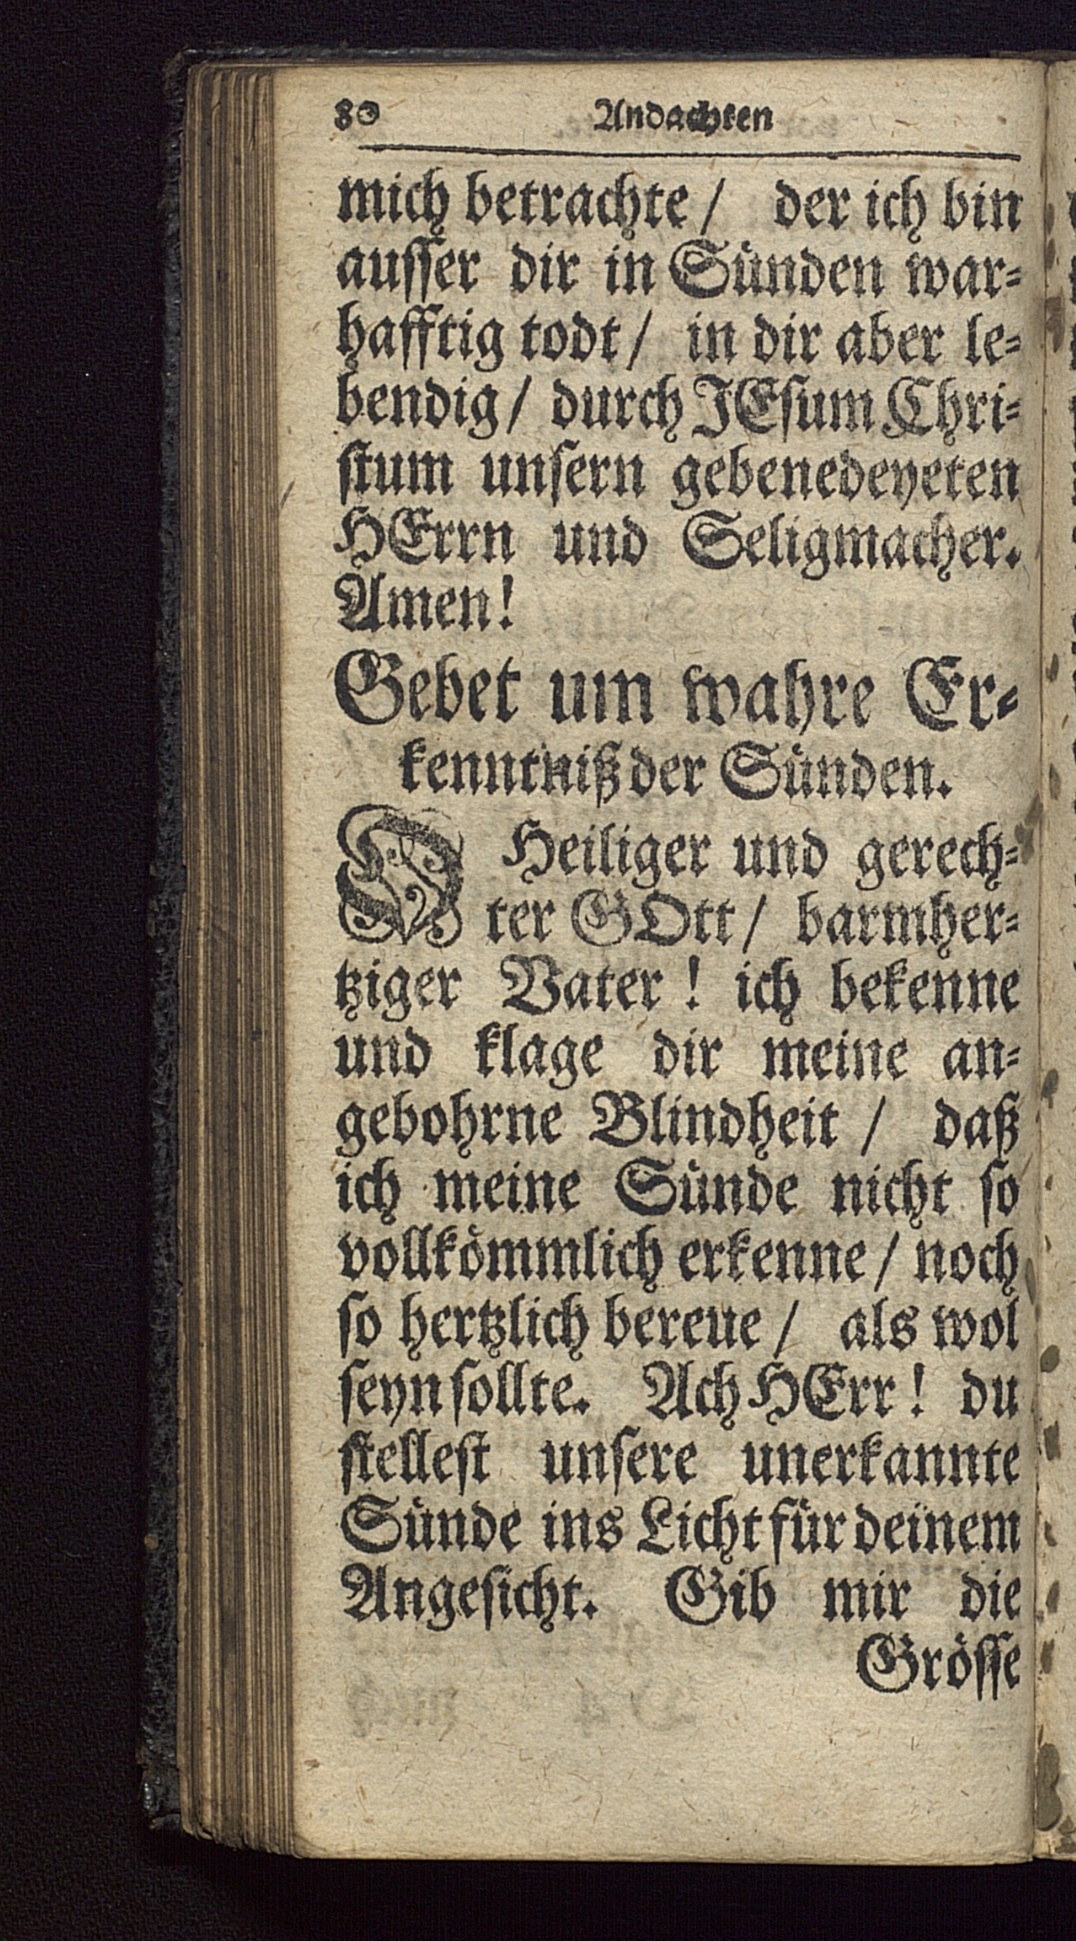 80 Andachten
mich betrachte / der ich bin
auſſer dir in Sünden war-
hafftig todt / in dir aber le-
bendig / durch JEſum Chri-
ſtum unſern gebenedeyeten
HErrn und Seligmacher.
Amen!
Gebet um wahre Er-
kenntniß der Sünden.
O Heiliger und gerech-
ter GOtt / barmher-
tziger Vater! ich bekenne
und klage dir meine an-
gebohrne Blindheit / daß
ich meine Sünde nicht ſo
vollkömmlich erkenne / noch
ſo hertzlich bereue / als wol
ſeyn ſollte. Ach HErr! du
ſtelleſt unſere unerkannte
Sünde ins Licht für deinem
Angeſicht. Gib mir die
Gröſſe